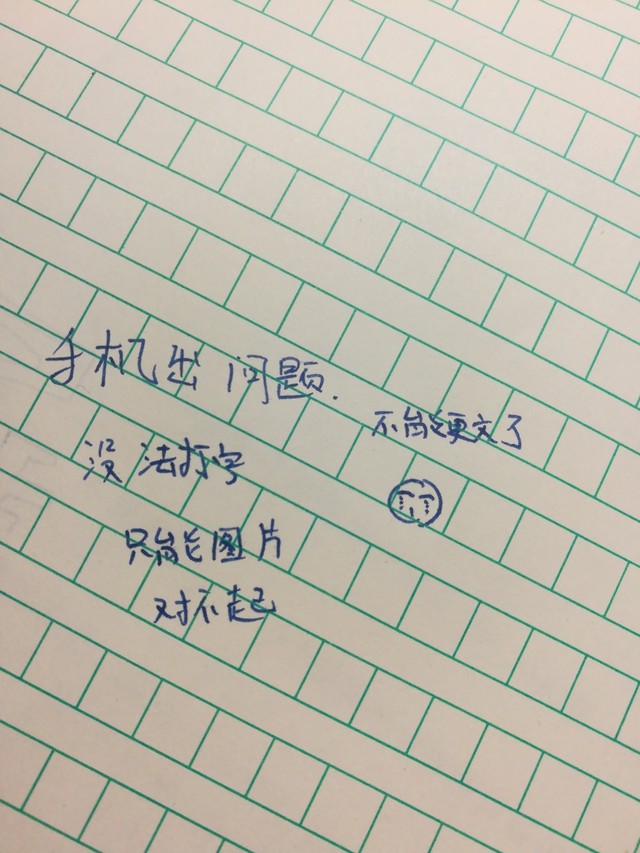 手机出问题.
不能更文了
没法打字
只能图片
对不起